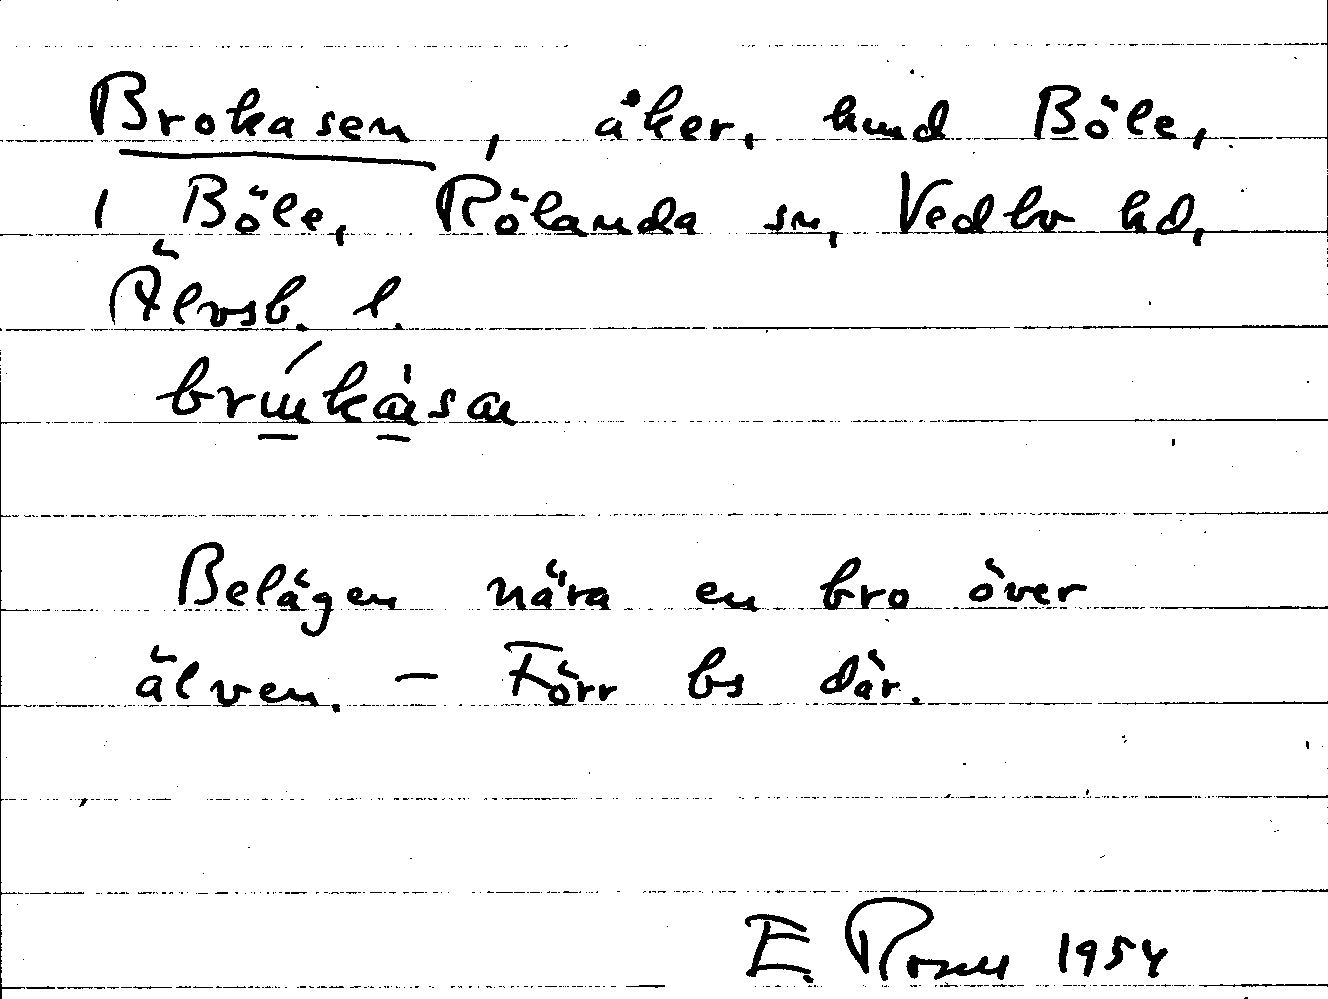 Brokasen, åker, hmd Böle,
1 Böle, Rölanda sn, Vedbo hd,
Älvsb. l.
Belägen nära en bro över
älven. – Förr bs där.
E. 1954